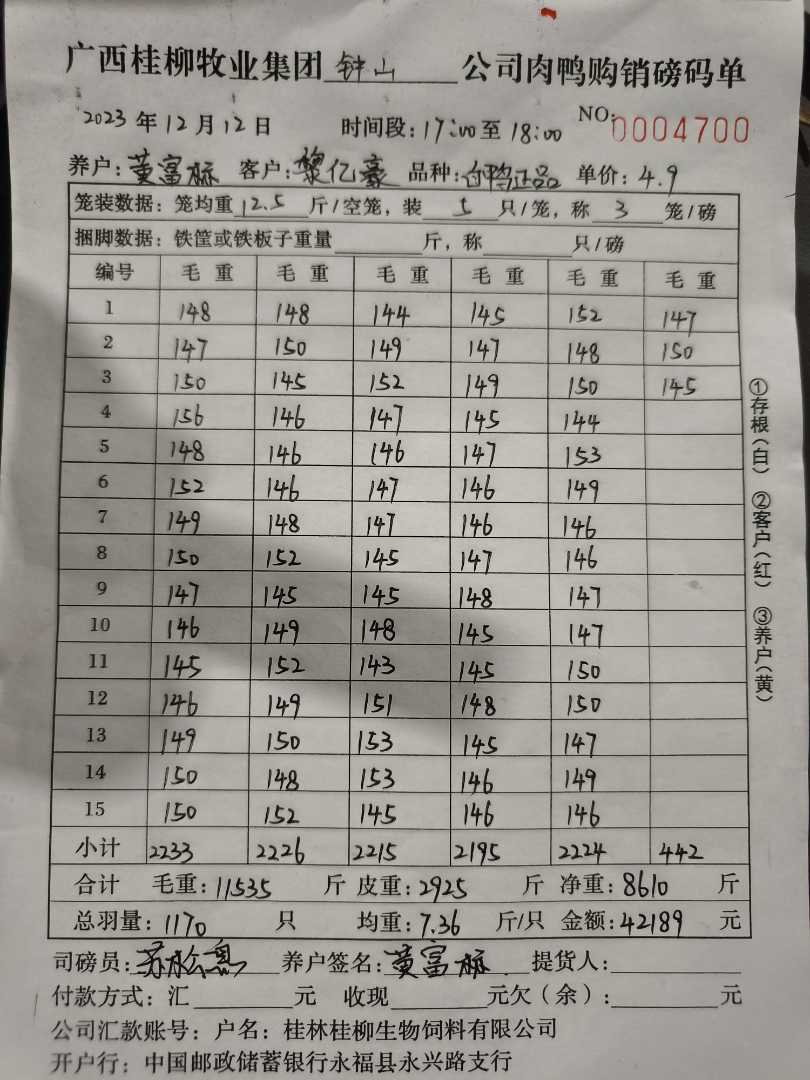 广西桂柳牧业集团 钟山 公司肉鸭购销磅码单
2023年12月12日 时间段:17:00至18:00 NO:0004700
养户:黄富标 客户:黎亿豪 品种:白鸭正品 单价:4.9
笼装数据:笼均重 12.5 斤/空笼,装 5 只/笼,称 3 笼/磅
捆脚数据:铁筐或铁板子重量 斤,称 只/磅
编号 毛重 毛重 毛重 毛重 毛重 毛重
1 148 148 144 145 152 147
2 147 150 149 147 148 150
3 150 145 152 149 150 145
4 156 146 147 145 144
5 148 146 146 147 153
6 152 146 147 146 149
7 149 148 147 146 146
8 150 152 145 147 146
9 147 145 145 148 147
10 146 149 148 145 147
11 145 152 143 145 150
12 146 149 151 148 150
13 149 150 153 145 147
14 150 148 153 146 149
15 150 152 145 146 146
小计 2233 2226 2215 2195 2224 442
合计 毛重:11535 斤 皮重:2925 斤 净重:8610 斤
总羽量:1170 只 均重:7.36 斤/只 金额:42189 元
司磅员:苏 养户签名:黄富标 提货人:
付款方式:汇 元 收现 元欠(余): 元
公司汇款账号:户名:桂林桂柳生物饲料有限公司
开户行:中国邮政储蓄银行永福县永兴路支行
①存根(白) ②客户(红) ③养户(黄)